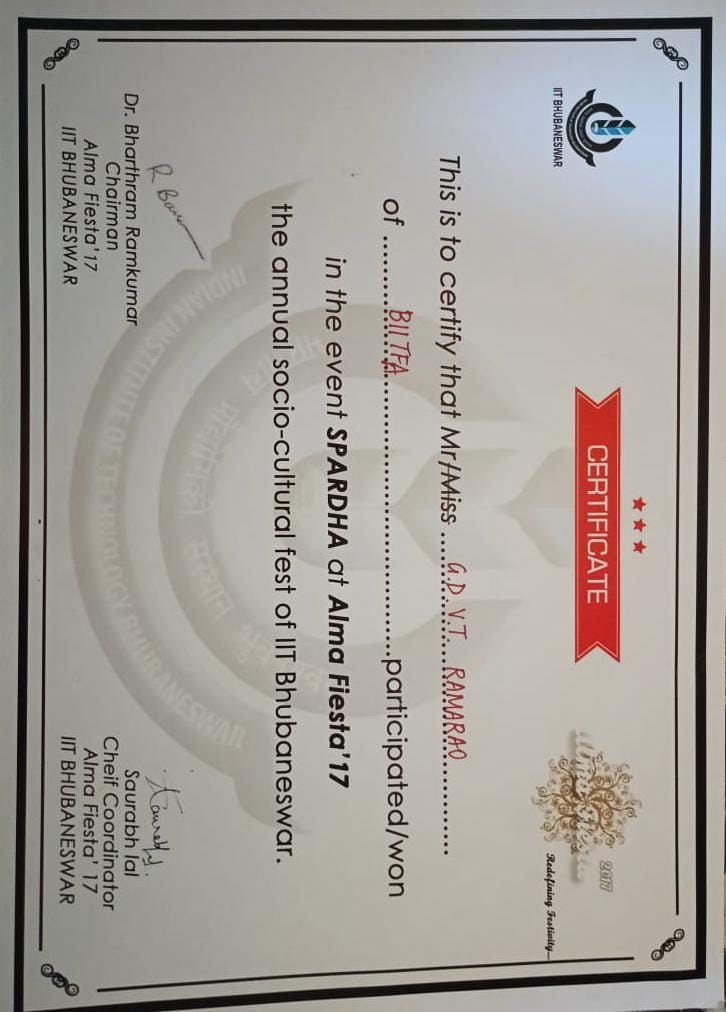 IIT BHUBANESWAR
CERTIFICATE
Alma Fiesta
2017
Redefining Festivity...
This is to certify that Mr/Miss ....G.D.V.T. RAMARAO..............
of .........BIITFA.......................................participated/won
in the event SPARDHA at Alma Fiesta'17
the annual socio-cultural fest of IIT Bhubaneswar.
भारतीय प्रौद्योगिकी संस्थान भुवनेश्वर
INDIAN INSTITUTE OF TECHNOLOGY BHUBANESWAR
Dr. Bharthram Ramkumar
Chairman
Alma Fiesta'17
IIT BHUBANESWAR
Saurabh lal
Cheif Coordinator
Alma Fiesta' 17
IIT BHUBANESWAR